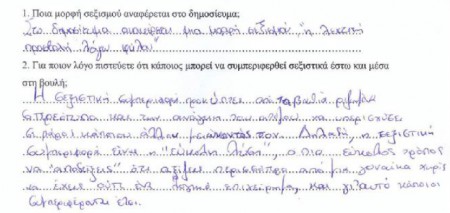 1. Ποια μορφή σεξισμού αναφέρεται στο δημοσίευμα;
Στο δημοσίευμα αναφέρεται μια μορφή σεξισμού "η λεκτική
προσβολή λόγω φύλου"
2. Για ποιον λόγο πιστεύετε ότι κάποιος μπορεί να συμπεριφερθεί σεξιστικά έστω και μέσα
στη βουλή;
Η σεξιστική συμπεριφορά προκύπτει από τα βαθιά ριζωμένα
στερεότυπα και την ανάγκη του ατόμου να υπερισχύσει
εις βάρος κάποιου άλλου μειώνοντάς τον. Δηλαδή, η σεξιστική
συμπεριφορά είναι η "εύκολη λύση", ο πιο εύκολος τρόπος
να "αποδείξεις" ότι αξίζεις περισσότερο από μια γυναίκα χωρίς
να έχεις ούτε ένα λογικό επιχείρημα, και γι'αυτό κάποιοι
συμπεριφέρονται έτσι.